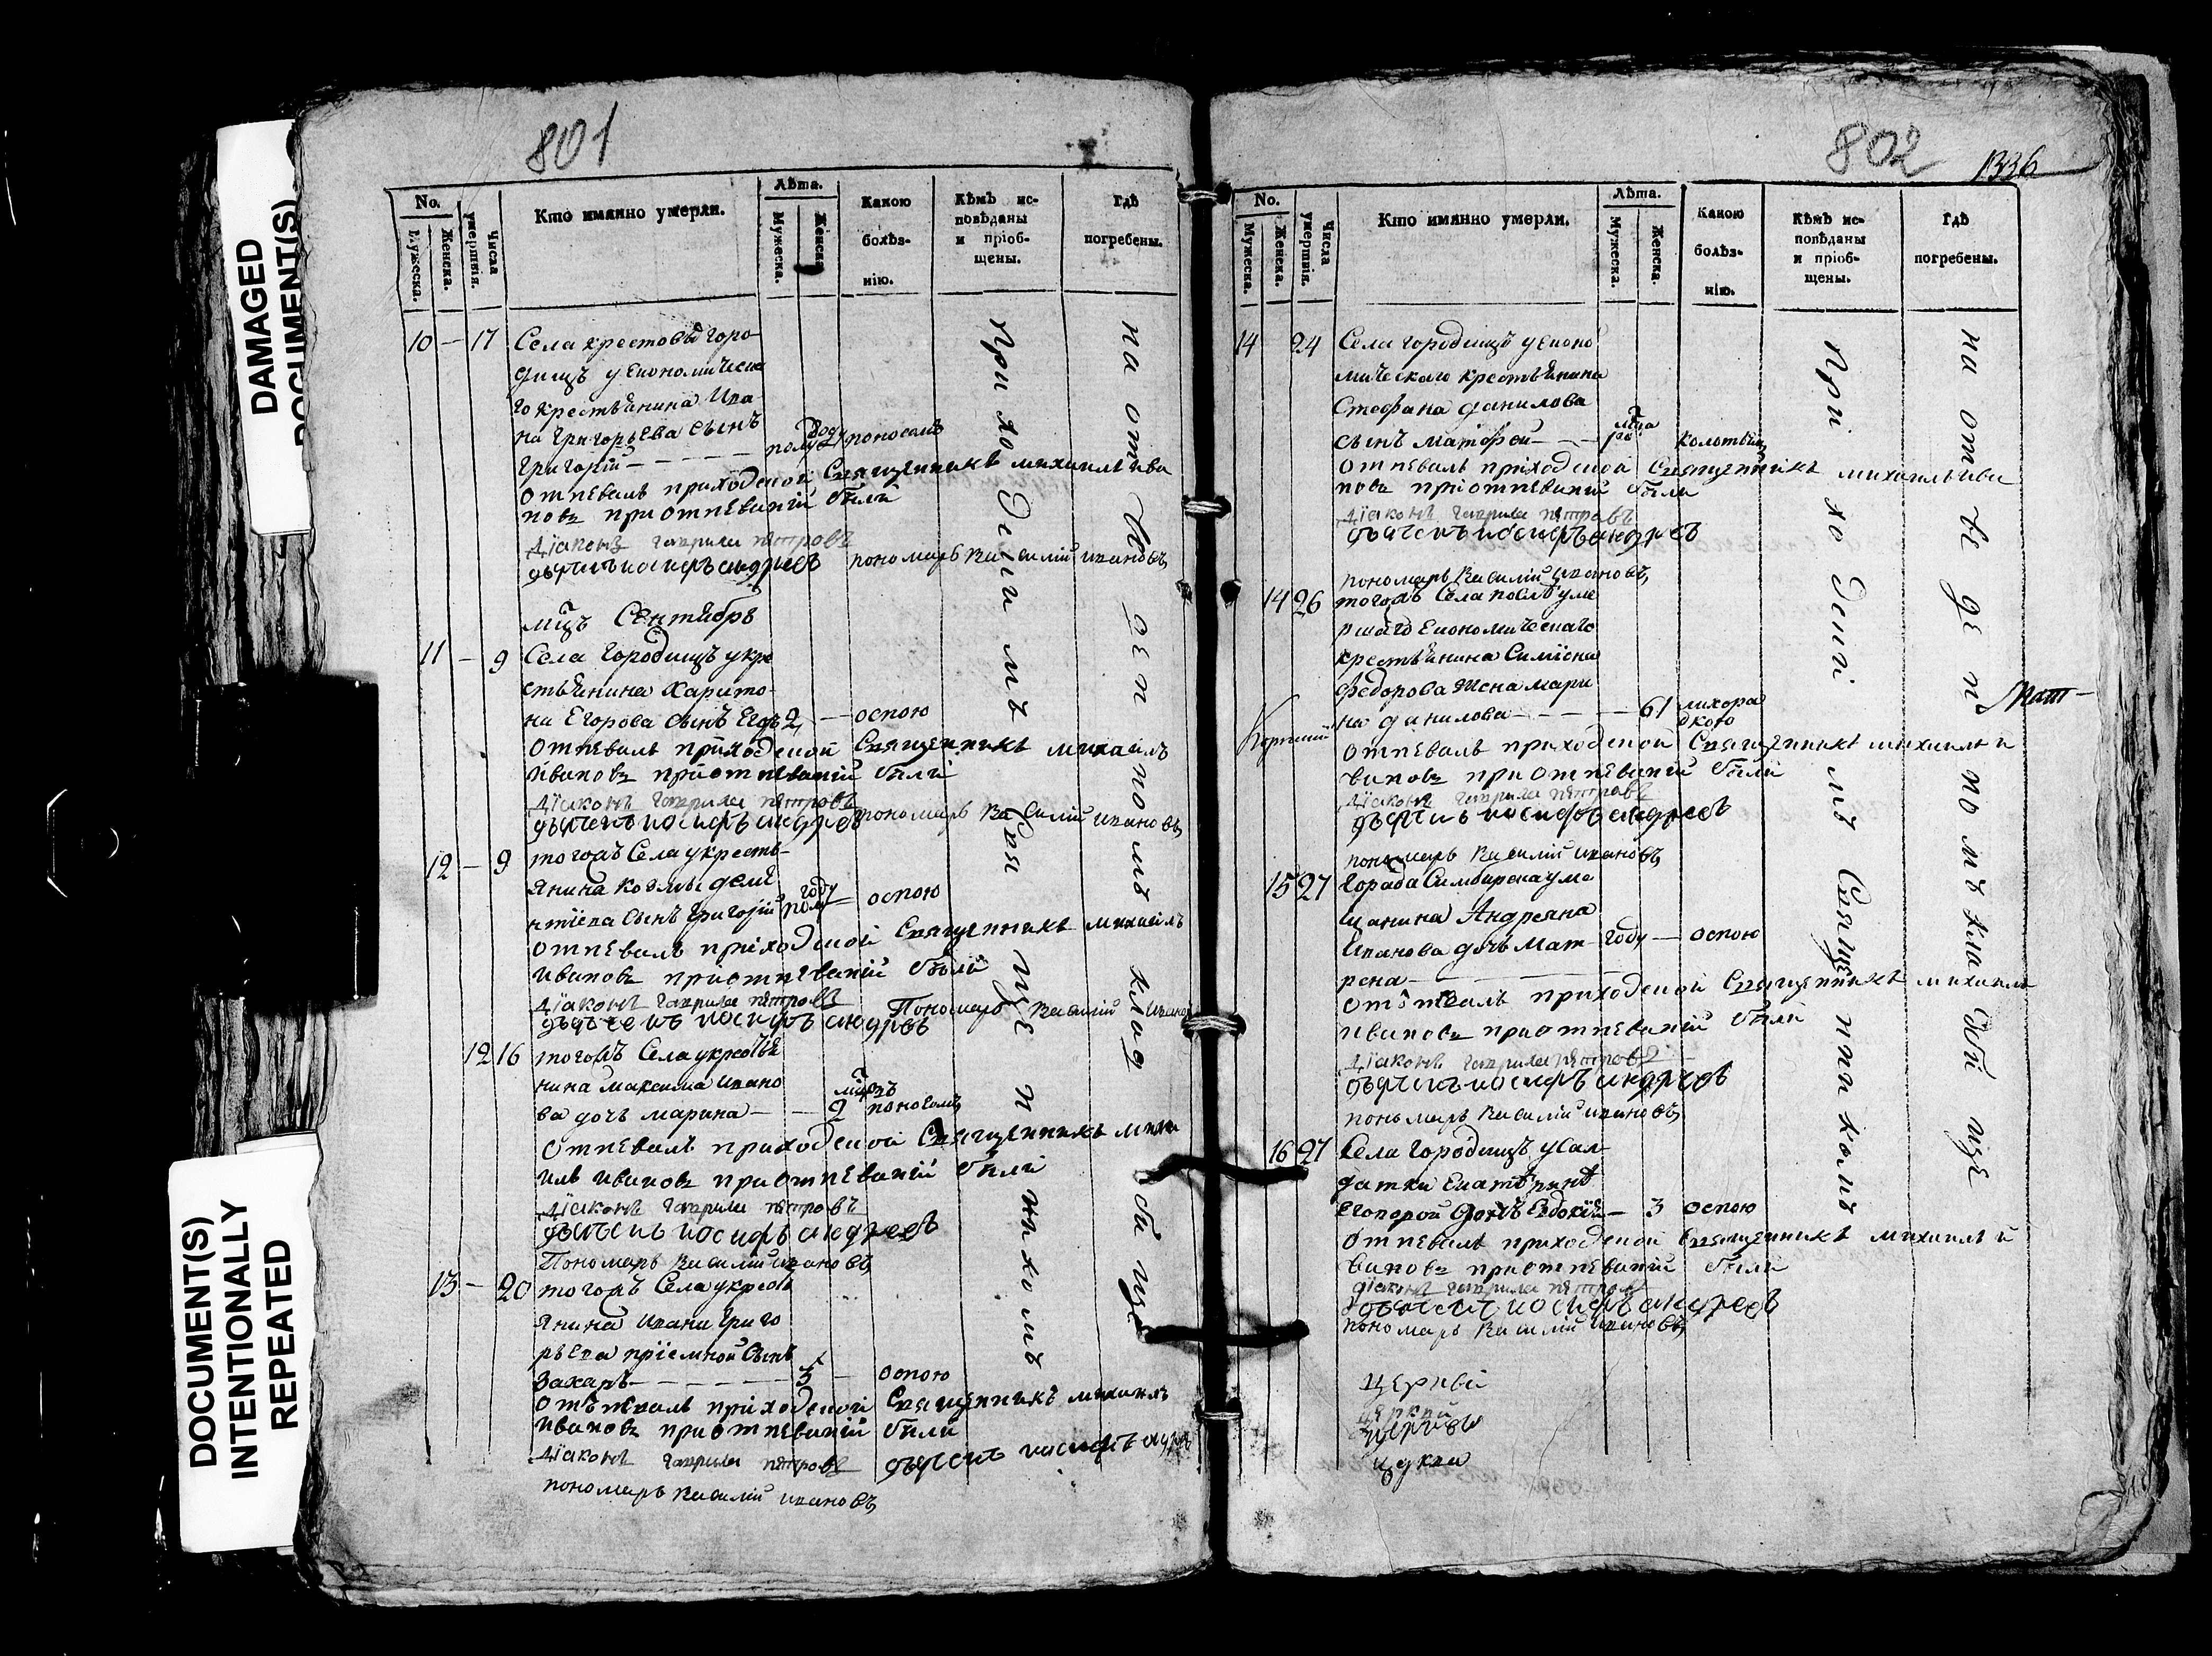 DAMAGED
DOCUMENT(S)
DOCUMENT(S)
INTENTIONALLY
REPEATED
801
No.
Мужеска.
Женска.
Числа умертвія.
Кто имянно умерли.
Лѣта.
Мужеска.
Женска
Какою болѣз-нію.
Кѣмъ ис-повѣданы и пріоб-щены.
Гдѣ погребены.
10 — 17 Села крестовы горо
дищъ у Економическа
го крестьянина Ива
на Григорьева сынъ
Григорій — полу году поносомъ
отпевалъ приходской Священникъ михаилъ ива
новъ при отпеваніи были
Діаконъ гаврила петровъ
дьячекъ иосифъ андреевъ пономарь Василий ивановъ
мцъ Сентябрь
11 — 9 Села Городищъ у кре
стьянина Харито
на Егорова сынъ Егоръ 2 — оспою
отпевалъ приходской Священникъ михаилъ
ивановъ при отпеваніи были
Діаконъ гаврила петровъ
дьячекъ иосифъ андреевъ пономарь Василий ивановъ
12 — 9 тогожъ Села у кресть
янина козмы деме
нтіева сынъ Григорій полу году оспою
отпевалъ приходской Священникъ михаилъ
ивановъ при отпеваніи были
Діаконъ гаврила петровъ
дьячекъ иосифъ андреевъ Пономарь Василий ивановъ
12 16 тогожъ Села у крестья
нина максима ивано
ва дочь марина — 2 поносомъ
отпевалъ приходской Священникъ миха
илъ ивановъ при отпеваніи были
Діаконъ гаврила петровъ
дьячекъ иосифъ андреевъ
Пономарь Василий ивановъ
13 — 20 тогожъ Села у кресть
янина ивана григо
рьева пріемной сынъ
Захаръ — 3 — оспою
отпевалъ приходской Священникъ михаилъ
ивановъ при отпеваніи были
Діаконъ гаврила петровъ дьячекъ иосифъ андреевъ
пономарь Василий ивановъ
При ходскимъ Священникомъ
на отведенномъ кладбище
802
1336
No.
Мужеска.
Женска.
Числа умертвія.
Кто имянно умерли.
Лѣта.
Мужеска.
Женска.
Какою болѣз-нію.
Кѣмъ ис-повѣданы и пріоб-щены.
Гдѣ погребены.
14 24 Села городищъ у Еконо
мическаго крестьянина
Стефана данилова
сынъ матфей —
отпевалъ приходской Священникъ михаилъ ива
новъ при отпеваніи были
Діаконъ гаврила петровъ
дьячекъ иосифъ андреевъ
пономарь Василий ивановъ
14 26 тогожъ Села после уме
ршаго Економическаго
крестьянина Симиона
федорова жена мари
на данилова — 61 лихора
дкою
отпевалъ приходской Священникъ михаилъ и
вановъ при отпеваніи были
Діаконъ гаврила петровъ
дьячекъ иосифъ андреевъ
пономарь Василий ивановъ
15 27 Города Симбирска у ме
щанина Андреяна
Иванова дочь Мат
рена — году — оспою
отпевалъ приходской Священникъ михаилъ
ивановъ при отпеваніи были
Діаконъ гаврила петровъ
дьячекъ иосифъ андреевъ
пономарь Василий ивановъ
16 27 Села Городищъ у сал
датки Екатерины
Егоровой дочь Евдокия — 3 оспою
отпевалъ приходской Священникъ михаилъ и
вановъ при отпеваніи были
діаконъ гаврила петровъ
дьячекъ иосифъ андреевъ
пономарь Василий ивановъ
При ходскимъ Священникомъ
на отведенномъ кладбище